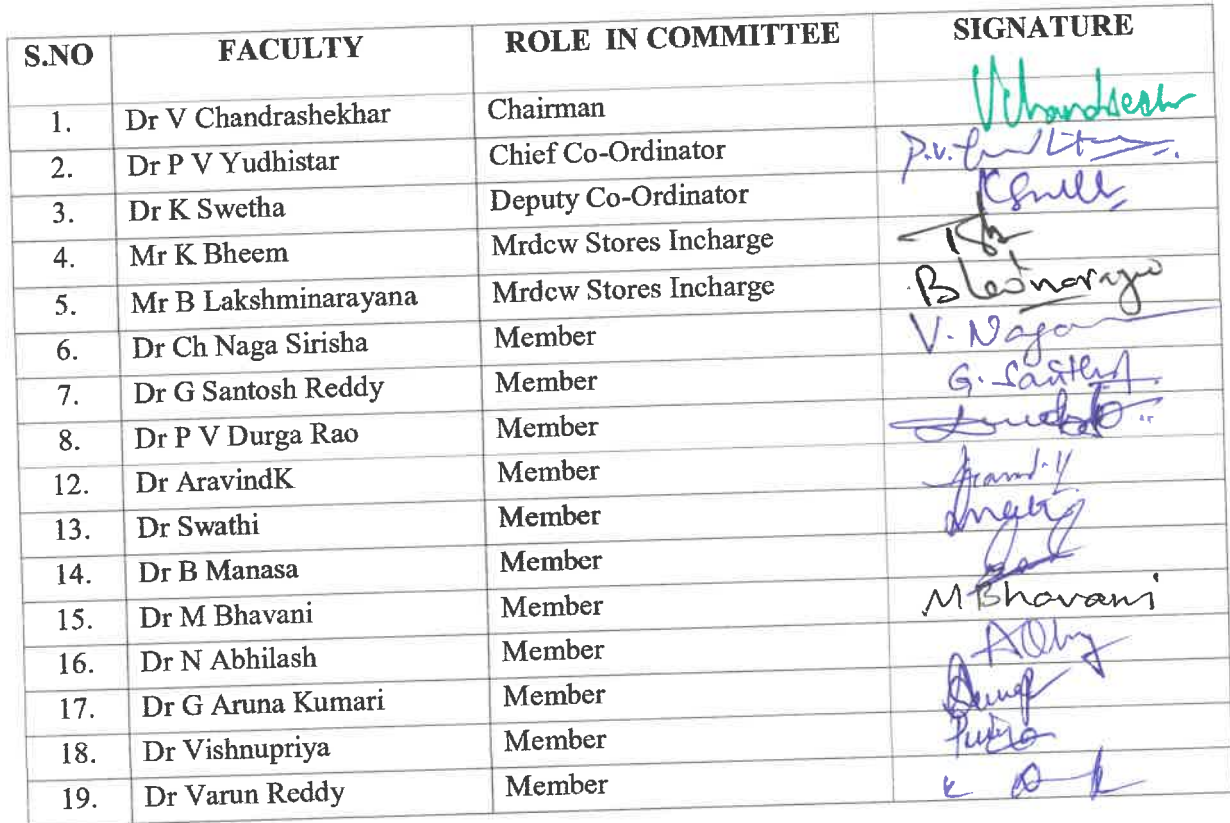 S.NO FACULTY ROLE IN COMMITTEE SIGNATURE
1. Dr V Chandrashekhar Chairman
2. Dr P V Yudhistar Chief Co-Ordinator P.V.
3. Dr K Swetha Deputy Co-Ordinator
4. Mr K Bheem Mrdcw Stores Incharge
5. Mr B Lakshminarayana Mrdcw Stores Incharge
6. Dr Ch Naga Sirisha Member V. Naga
7. Dr G Santosh Reddy Member G. Santhosh
8. Dr P V Durga Rao Member
12. Dr AravindK Member
13. Dr Swathi Member
14. Dr B Manasa Member
15. Dr M Bhavani Member M Bhavani
16. Dr N Abhilash Member
17. Dr G Aruna Kumari Member
18. Dr Vishnupriya Member
19. Dr Varun Reddy Member